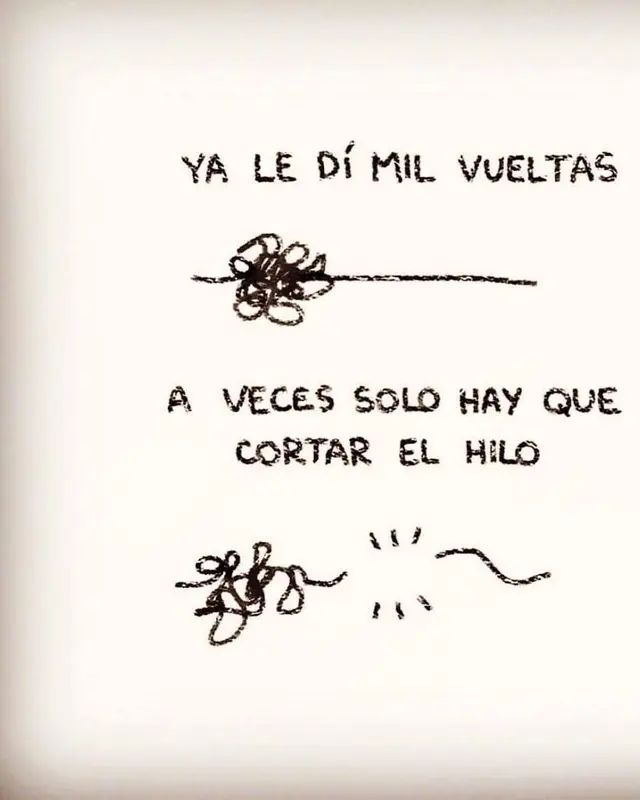 YA LE DÍ MIL VUELTAS
A VECES SOLO HAY QUE
CORTAR EL HILO